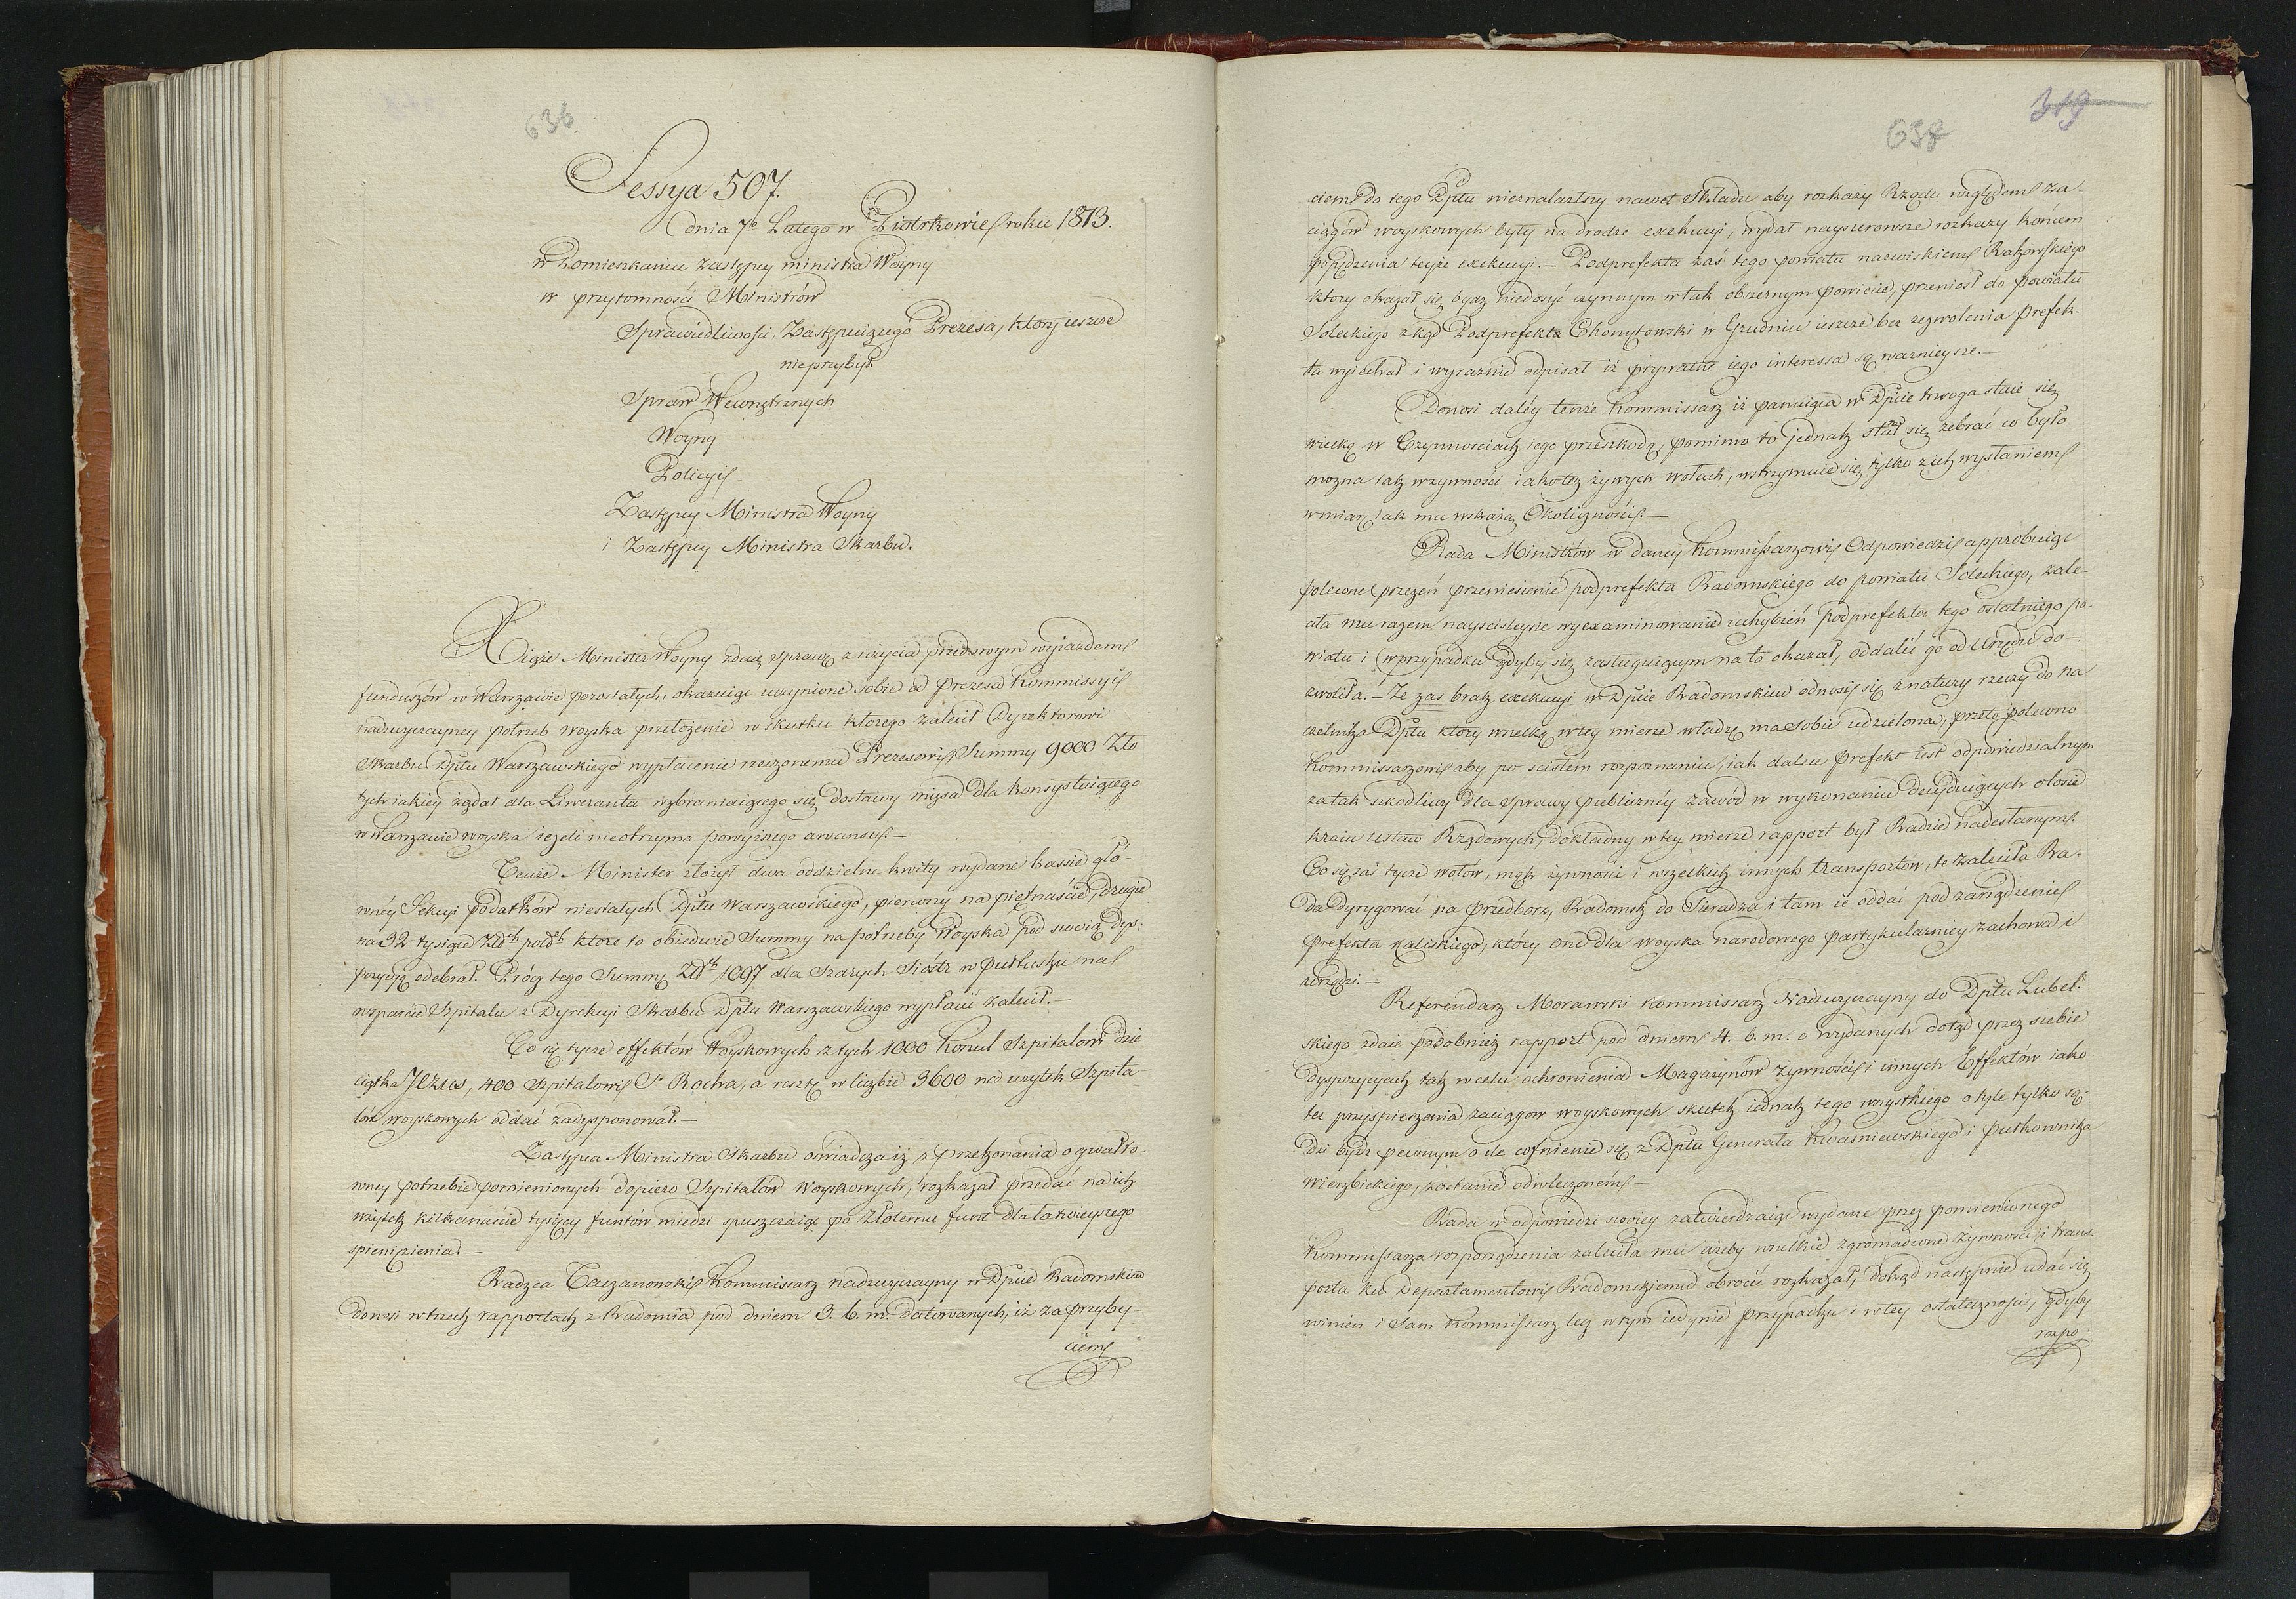 636.
Sessya 507.
dnia 7º Lutego w Piotrkowie roku 1813.
w Pomieszkaniu Zastępcy ministra Woyny
w przytomności Ministrów
Sprawiedliwości, Zastępuiącego Prezesa, który ieszcze
nieprzybył.
Spraw Wewnętrznych
Woyny
Policyi.
Zastępcy Ministra Woyny
i Zastępcy Ministra Skarbu.
Xiąże Minister Woyny zdaię sprawę z użycia przed swym wyiazdem
funduszów w Warszawie pozostałych, okazuiąc uczynione sobie od Prezesa Kommissyi
nadzwyczayney potrzeb woyska przełożenie w skutku którego zalecił Dyrektorowi
Skarbu Dpttu Warszawskiego wypłacenie rzeczonemu Prezesowi Summy 9000 Zło
tych iakiey żądał dla Liweranta wzbraniaiącego się dostawy mięsa dla konsystuiącego
w Warszawie woyska ieżeli nieotrzyma powyższego awansu.—
Tenże Minister złożył dwa oddzielne kwity wydane kassie głó-
wnéy Sekcyi podatków niestałych Dpttu Warszawskiego, pierwszy na piętnaście, drugie
na 32 tysiące Złtch polskch które to obiedwie Summy na potrzeby Woyska pod swoią dys-
pozycyą odebrał. Prócz tego Summę Złtch 1097 dla Szarych Sióstr w Pułtusku na
wsparcie Szpitalu z Dyrekcyi Skarbu Dpttu Warszawskiego wypłacić zalecił.—
Co się tycze effektów Woyskowych z tych 1000 Koszul Szpitalowi Dzie
ciątka Jezus, 400 Szpitalowi S. Rocha, a resztę w liczbie 3600 na użytek Szpita
lów woyskowych oddać zadysponował.—
Zastępca Ministra Skarbu oświadcza iż z przekonania o gwałto-
wney potrzebie pomienionych dopiero Szpitalów Woyskowych, rozkazał przedać na ich
użytek kilkanaście tysięcy funtów miedzi spuszczaiąc po Złotemu funt dla łatwieyszego
spieniężenia.—
Radzca Taczanowski Kommissarz nadzwyczayny w Dptcie Radomskim
donosi w trzech rapportach z Radomia pod dniem 3. b. m. datowanych, iż za przyby
ciem
319
637
ciem do tego Dpttu nieznalazłszy nawet składu aby rozkazy Rządu względem za-
ciągów woyskowych były na drodze exekucyi, wydał naysurowsze rozkazy końcem
popędzenia teyże exekucyi.— Podprefekta zaś tego powiatu nazwiskiem Rakowskiego
który okazał się bydź niedosyć czynnym w tak obszernym powiecie, przeniósł do powiatu
Soleckiego zkąd Podprefekta Chomętowski w Grudniu ieszcze bez zezwolenia Prefek-
ta wyiechał i wyraźnie odpisał iż prywatne iego interessa są ważnieysze.—
Donosi daléy tenże Kommissarz iż panuiąca w Dptcie trwoga staie się
wielką w Czynnościach iego przeszkodą, pomimo to jednak starał się zebrać co było
można tak w żywności iako też żywych wołach, wstrzymuie się tylko z ich wysłaniem
w miarę iak mu wskażą Okoliczności.—
Rada Ministrów w daney Kommissarzowi Odpowiedzi approbuiąc
polecone przezeń przeniesienie podprefekta Radomskiego do powiatu Soleckiego, zale-
ciła mu razem nayściśleysze wyexaminowanie uchybień podprefekta tego ostatniego po-
wiatu i w przypadku gdyby się zasługuiącym na to okazał, oddalić go od Urzędu do-
zwoliła.— Że zaś brak exekucyi w Dptcie Radomskim odnosi się z natury rzeczy do na
czelnika Dpttu który wszelką w tey mierze władzę ma sobie udzieloną, przeto polecono
Kommissarzowi aby po ścisłem rozpoznaniu, iak dalece Prefekt iest odpowiedzialnym
za tak szkodliwy dla sprawy publicznéy zawód w wykonaniu decyduiących o losie
kraiu ustaw Rządowych, dokładny w tey mierze rapport był Radzie nadesłanym.
Co się zaś tycze wołów, mąk żywności i wszelkich innych transportów, te zaleciła Ra-
da dyrygować na Przedborz, Radomsk do Sieradza i tam ie oddać pod zarządzenie
Prefekta Kaliskiego, który one dla woyska narodowego partykularniey zachowa i
zarządzi.—
Referendarz Morawski Kommissarz Nadzwyczayny do Dpttu Lubel-
skiego zdaie podobnież rapport pod dniem 4. b. m. o wydanych dotąd przez siebie
dyspozycyach tak w celu ochronienia Magazynów żywności i innych Effektów iako
też przyspieszenia zaciągów woyskowych skutek iednak tego wszystkiego o tyle tylko są-
dzi bydź pewnym o ile cofnienie się z Dpttu Generała Kwaśniewskiego i Pułkownika
Wierzbickiego, zostanie odwleczonem.—
Rada w odpowiedzi swoiey zatwierdzaiąc wydane przez pomienionego
Kommissarza rozporządzenia zaleciła mu ażeby wszelkie zgromadzone żywności i trans-
porta ku Departamentowi Radomskiemu obrócić rozkazał, dokąd następnie udać się
winien i Sam Kommissarz lecz w tym iedynie przypadku i w tey ostateczności, gdyby
rozpo